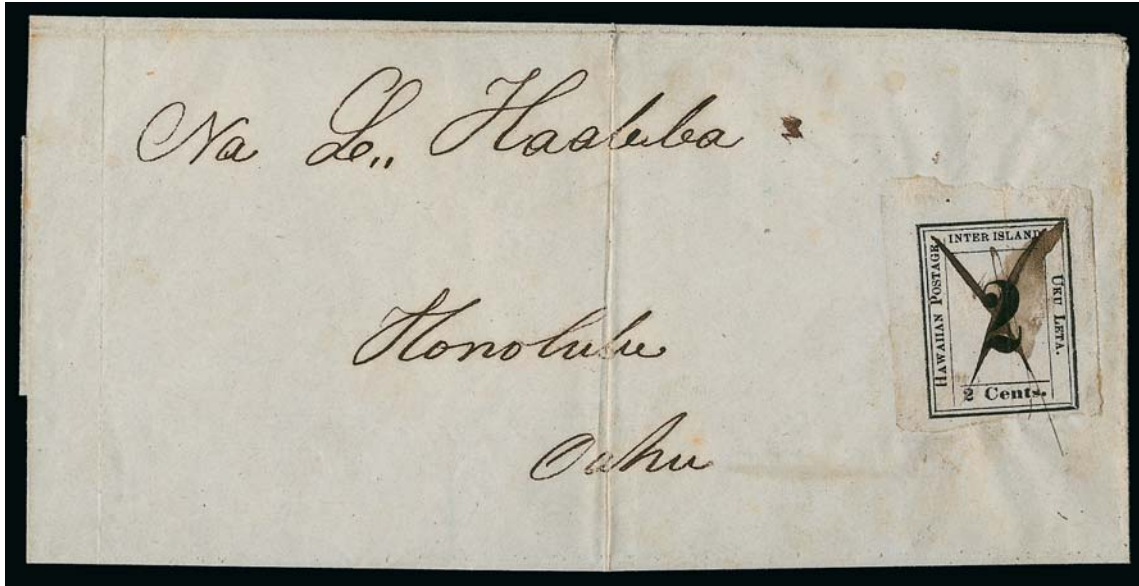 Na L,, Haalelea
Honolulu
Oahu
INTER ISLAND
HAWAIIAN POSTAGE
UKU LETA.
2
2 Cents.